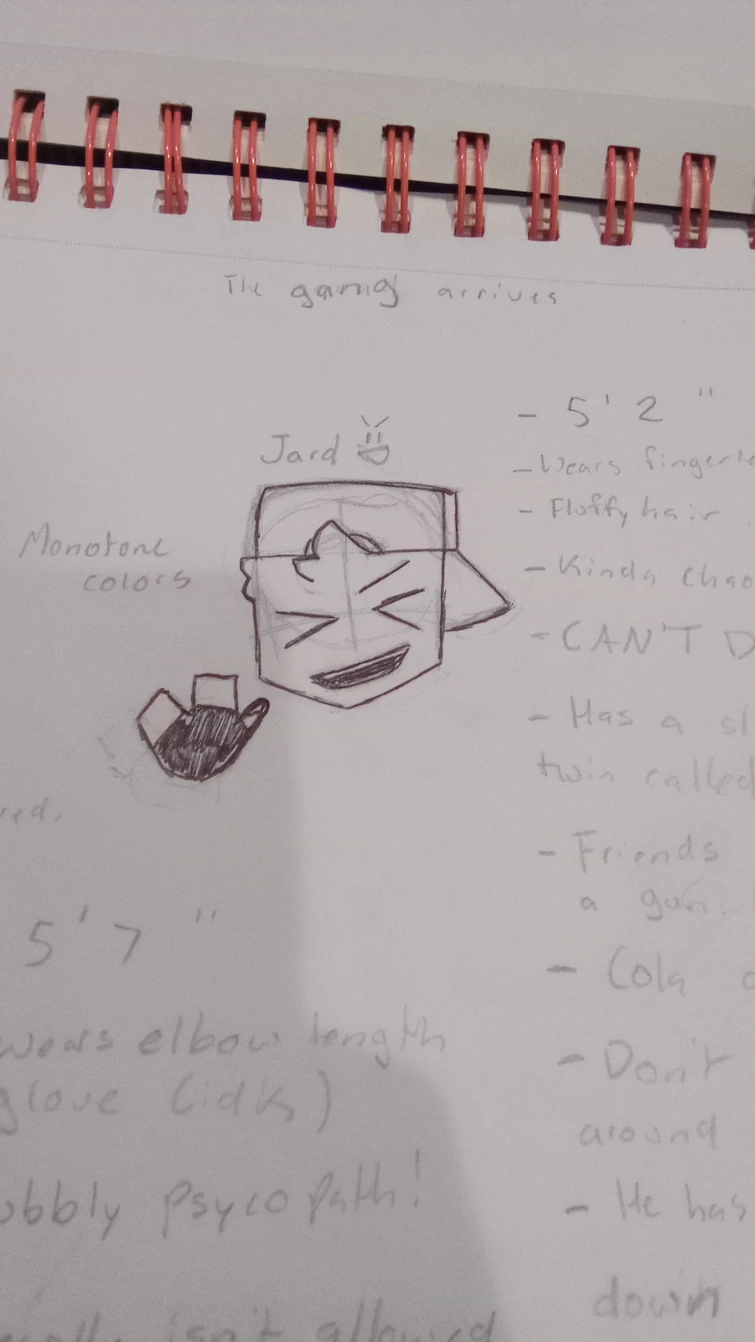 The gamg arrives
Jard
Monotone
colors
- 5'2"
- Wears
- Fluffy hair
- Kinda
- CAN'T
- Has a
twin called
- Friends
a gun.
- Cola
- Don't
around
- He has
down
5'7"
wears elbow length
glove (idk)
psycopath!
isn't allowed